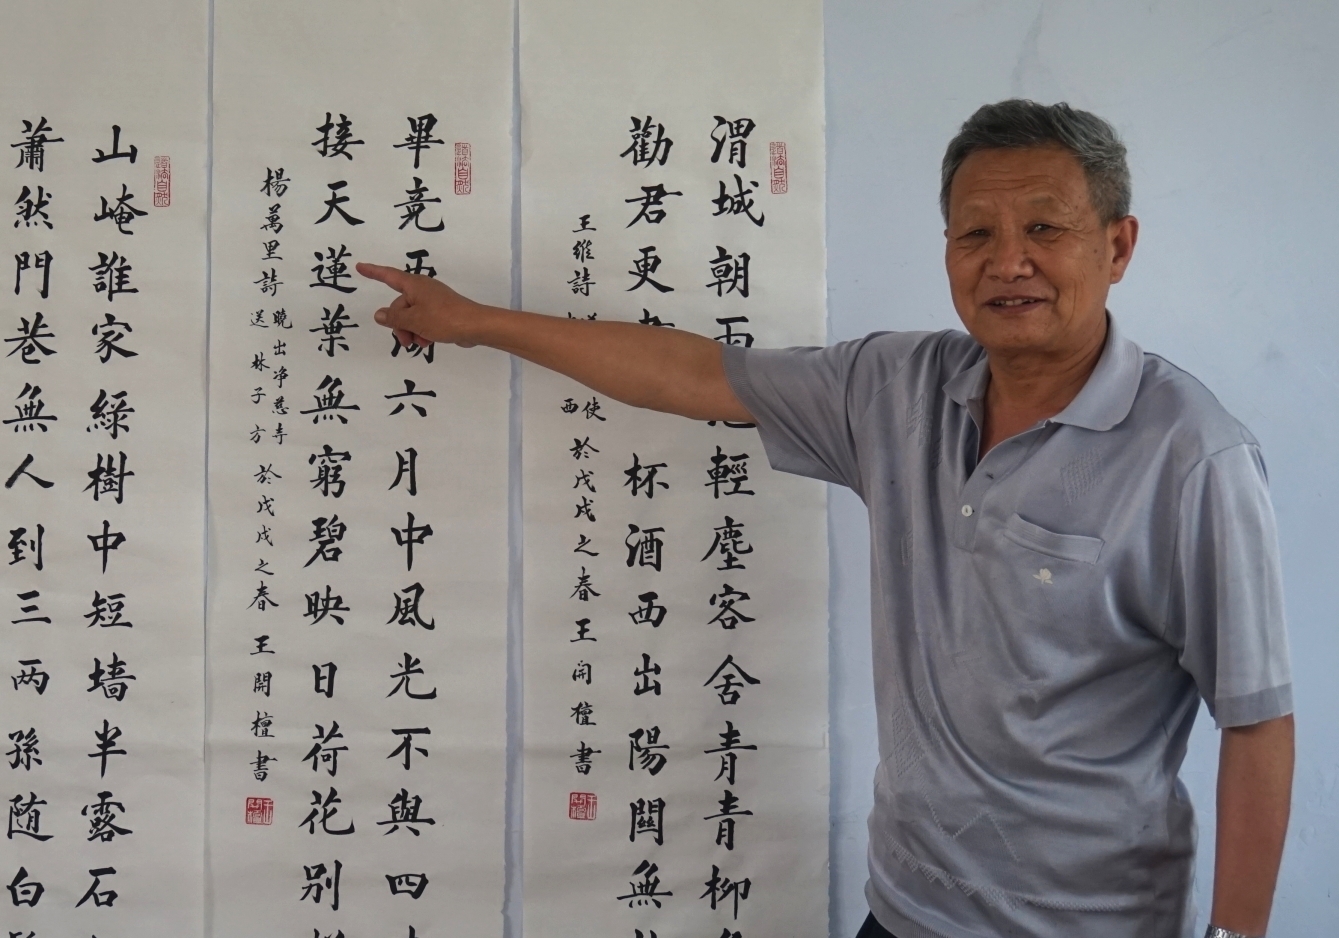 渭城朝雨輕塵客舍青青柳
勸君更杯酒西出陽關無
王維詩使西於戊戌之春王開檀書
道法自然
畢竟西湖六月中風光不與四
接天蓮葉無窮碧映日荷花別
楊萬里詩曉出净慈寺送林子方於戊戌之春王開檀書
道法自然
山崦誰家綠樹中短墙半露石
蕭然門巷無人到三两孫随白